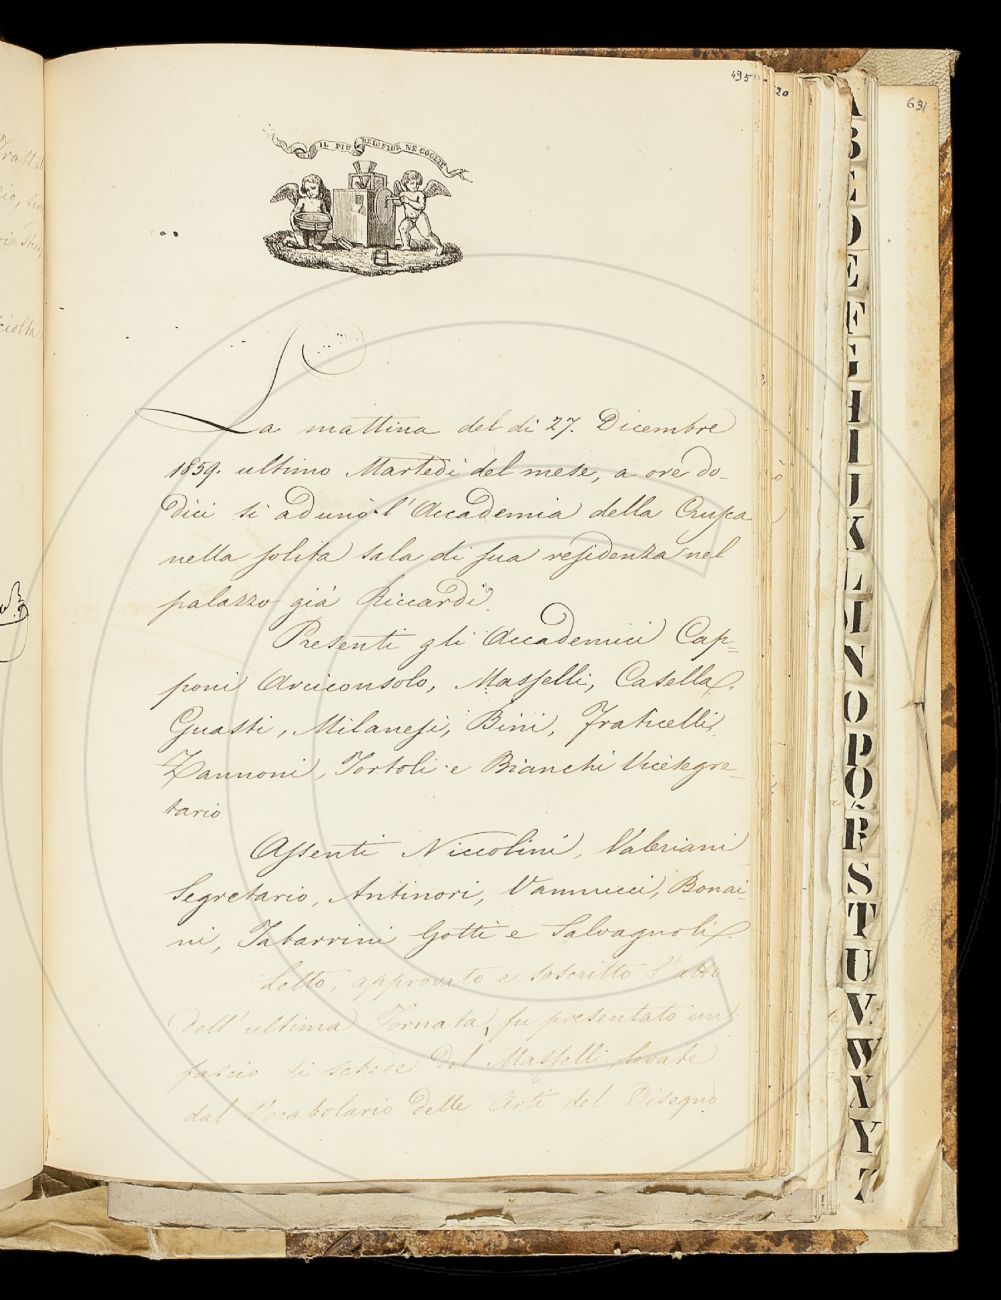 495
20
691
IL PIÙ BEL FIOR NE COGLIE
La mattina del dì 27. Dicembre
1859. ultimo Martedì del mese, a ore do-
dici si adunò l'Accademia della Crusca
nella solita sala di sua residenza nel
palazzo già Riccardi.
Presenti gli Accademici Cap=
poni Arciconsolo, Masselli, Casella,
Guasti, Milanesi, Bini, Fraticelli,
Zannoni, Tortoli e Bianchi Vicesegre-
tario
Assenti Niccolini, Valeriani
Segretario, Antinori, Vannucci, Bonai-
ni, Tabarrini Gotti e Salvagnoli
Letto, approvato e soscritto l'atto
dell'ultima Tornata, fu presentato un
fascio di schede del Masselli, levate
dal Vocabolario delle Arti del Disegno
A
B
C
D
E
F
G
H
I
J
K
L
M
N
O
P
Q
R
S
T
U
V
W
X
Y
Z